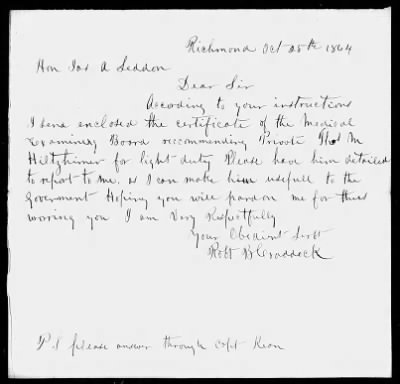 Richmond Oct 25th 1864
Hon Jas A Seddon
Dear Sir
According to your instructions
I send enclosed the certificate of the Medical
Examining Board recommending Private Thos M
Hiltzheimer for light duty Please have him detailed
to report to me. as I can make him usefull to the
Goverment Hoping you will pardon me for thus
worring you I am Very Respectfully
Your Obedient Servt
Robt B Craddock
P.S please answer through Capt Kean